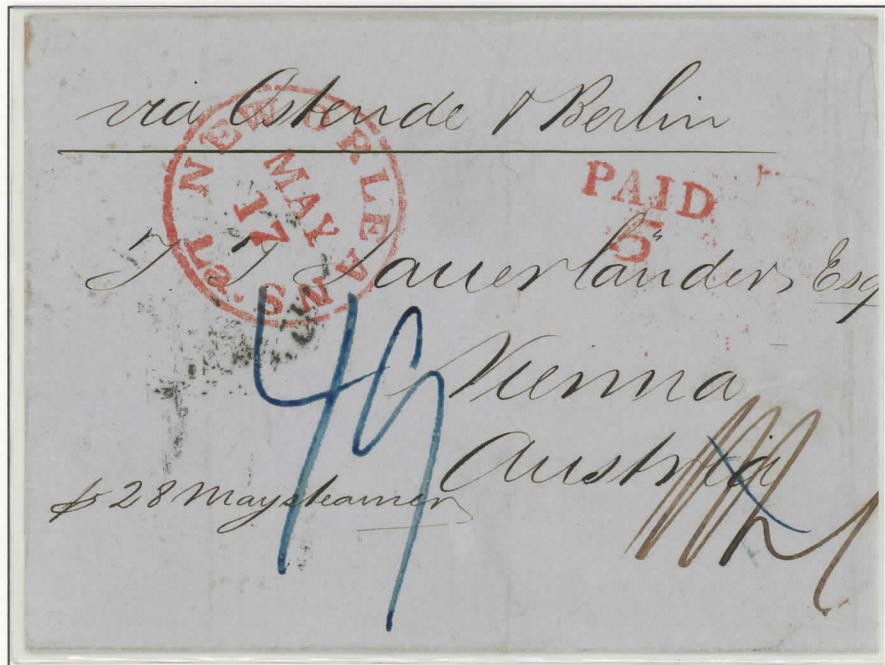 via Ostende & Berlin
NEW ORLEANS LA
MAY
17
PAID
5
J J Sauerländer, Esq
Vienna
Austria
49
pr 28 May steamer